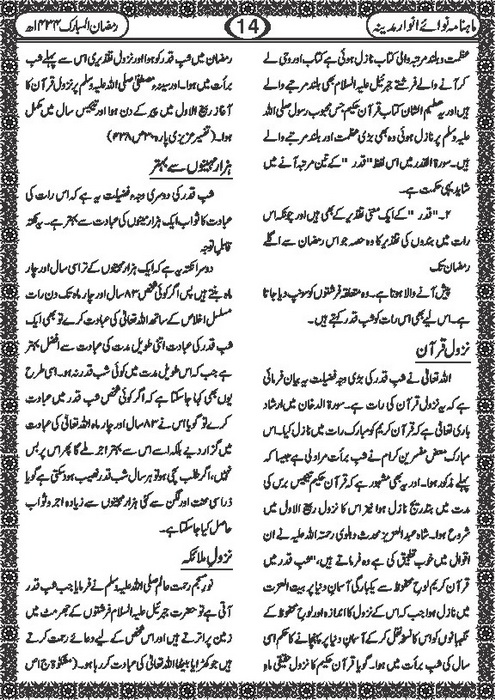 ماہنامہ نوائے انوار مدینہ
14
رمضان المبارک ۱۴۳۴ھ
عظمت و بلند مرتبہ والی کتاب نازل ہوئی ہے کتاب اور وحی لے
کر آنے والے فرشتے جبرئیل علیہ السلام بھی بلند مرجبے والے
ہیں اور یہ عظیم الشان کتاب قرآن حکیم جس محبوب رسول صلی اللہ
علیہ وسلم پر نازل ہوئی وہ بھی بڑی عظمت اور بلند مرجبے والے
ہیں۔ سورۃ القدر میں اس لفظ "قدر" کے تین مرتبہ آنے میں
شاید یہی حکمت ہے۔
۲۔ "قدر" کے ایک معنی تقدیر کے بھی ہیں اور چونکہ اس
رات میں بندوں کی تقدیر کا وہ حصہ جو اس رمضان سے اگلے
رمضان تک
پیش آنے والا ہوتا ہے۔ وہ متعلقہ فرشتوں کو سونپ دیا جاتا
ہے۔ اس لیے بھی اس رات کو شب قدر کہتے ہیں۔
نزول قرآن
اللہ تعالیٰ نے شب قدر کی بڑی وجہ فضیلت یہ بیان فرمائی
ہے کہ یہ نزولی قرآن کی رات ہے۔ سورۃ الدخان میں ارشاد
باری تعالیٰ ہے کہ ہم نے قرآن کریم کو مبارک رات میں نازل کیا۔ اس
مبارک معض مفسرین کرام نے شب برأت مراد لی ہے جیسا کہ
پہلے مذکور ہوا۔ اور یہ بھی مشہور ہے کہ قرآن حکیم تیئیس برس کی
مدت میں بتدریج نازل ہوا نیز اس کا نزول ربیع الاول میں
شروع ہوا۔ شاہ عبدالعزیز محدث دہلوی رحمتہ اللہ علیہ نے ان
اقوال میں خوب تطبیق کی ہے وہ فرماتے ہیں، "شب قدر میں
قرآن کریم لوح محفوظ سے یکبارگی آسمان دنیا پر بیت العزت
میں نازل ہوا جب کہ اس کے نزول کا اندازہ اور لوح محفوظ کے
نگہبانوں کو اس کا نسخہ نقل کر کے آسمان دنیا پر پہنچانے کا حکم اسی
سال کی شب برأت میں ہوا۔ گویا قرآن حکیم کا نزول حقیقی ماہ
رمضان میں شب قدر کو ہوا اور نزول تقدیری اس سے پہلے شب
برأت میں ہوا۔ اور سیدنا مصطفیٰ صلی اللہ علیہ وسلم پر نزول قرآن کا
آغاز ربیع الاول میں پیر کے دن ہوا اور تیئیس سال میں مکمل
ہوا۔ (تفسیر عزیزی پارہ ۳۰ ص ۴۳۸)
ہزار مہینوں سے بہتر
شب قدر کی دوسری وجہ فضیلت یہ ہے کہ اس رات کی
عبادت کا ثواب ایک ہزار مہینوں کی عبادت سے بہتر ہے۔ یہ نکتہ
قابل توجہ
دوسرا نکتہ یہ ہے کہ ایک ہزار مہینوں کے تراسی سال اور چار
ماہ بنتے ہیں پس اگر کوئی شخص ۸۳ سال اور چار ماہ تک دن رات
مسلسل اخلاص کے ساتھ اللہ تعالیٰ کی عبادت کرے تو بھی ایک
شب قدر کی عبادت اتنی طویل مدت کی عبادت سے افضل بہتر
ہے جب کہ اس طویل مدت میں کوئی شب قدر نہ ہو۔ اسی طرح
یوں بھی کہا جا سکتا ہے کہ اگر کوئی شخص شب قدر میں عبادت
کرے تو گویا اس نے ۸۳ سال اور چار ماہ اللہ تعالیٰ کی عبادت
میں گزار دیے بلکہ اسے اس سے بہتر اجر ملے گا پھر اس پر بس
نہیں، اگر طلب سچی ہو تو ہر سال شب قدر نصیب ہو سکتی ہے گویا
ذرا سی محنت اور لگن سے کئی ہزار مہینوں سے زیادہ اجر و ثواب
حاصل کیا جا سکتا ہے۔
نزول ملائکہ
نور مجسم رحمت عالم صلی اللہ علیہ وسلم نے فرمایا جب شب قدر
آتی ہے تو حضرت جبرئیل علیہ السلام فرشتوں کے جھرمٹ میں
زمین پر اترتے ہیں اور اس شخص کے لیے دعائے رحمت کرتے
ہیں جو کھڑا یا بیٹھا اللہ تعالیٰ کی عبادت کر رہا ہو۔ (مشکوٰۃ ج ا ص